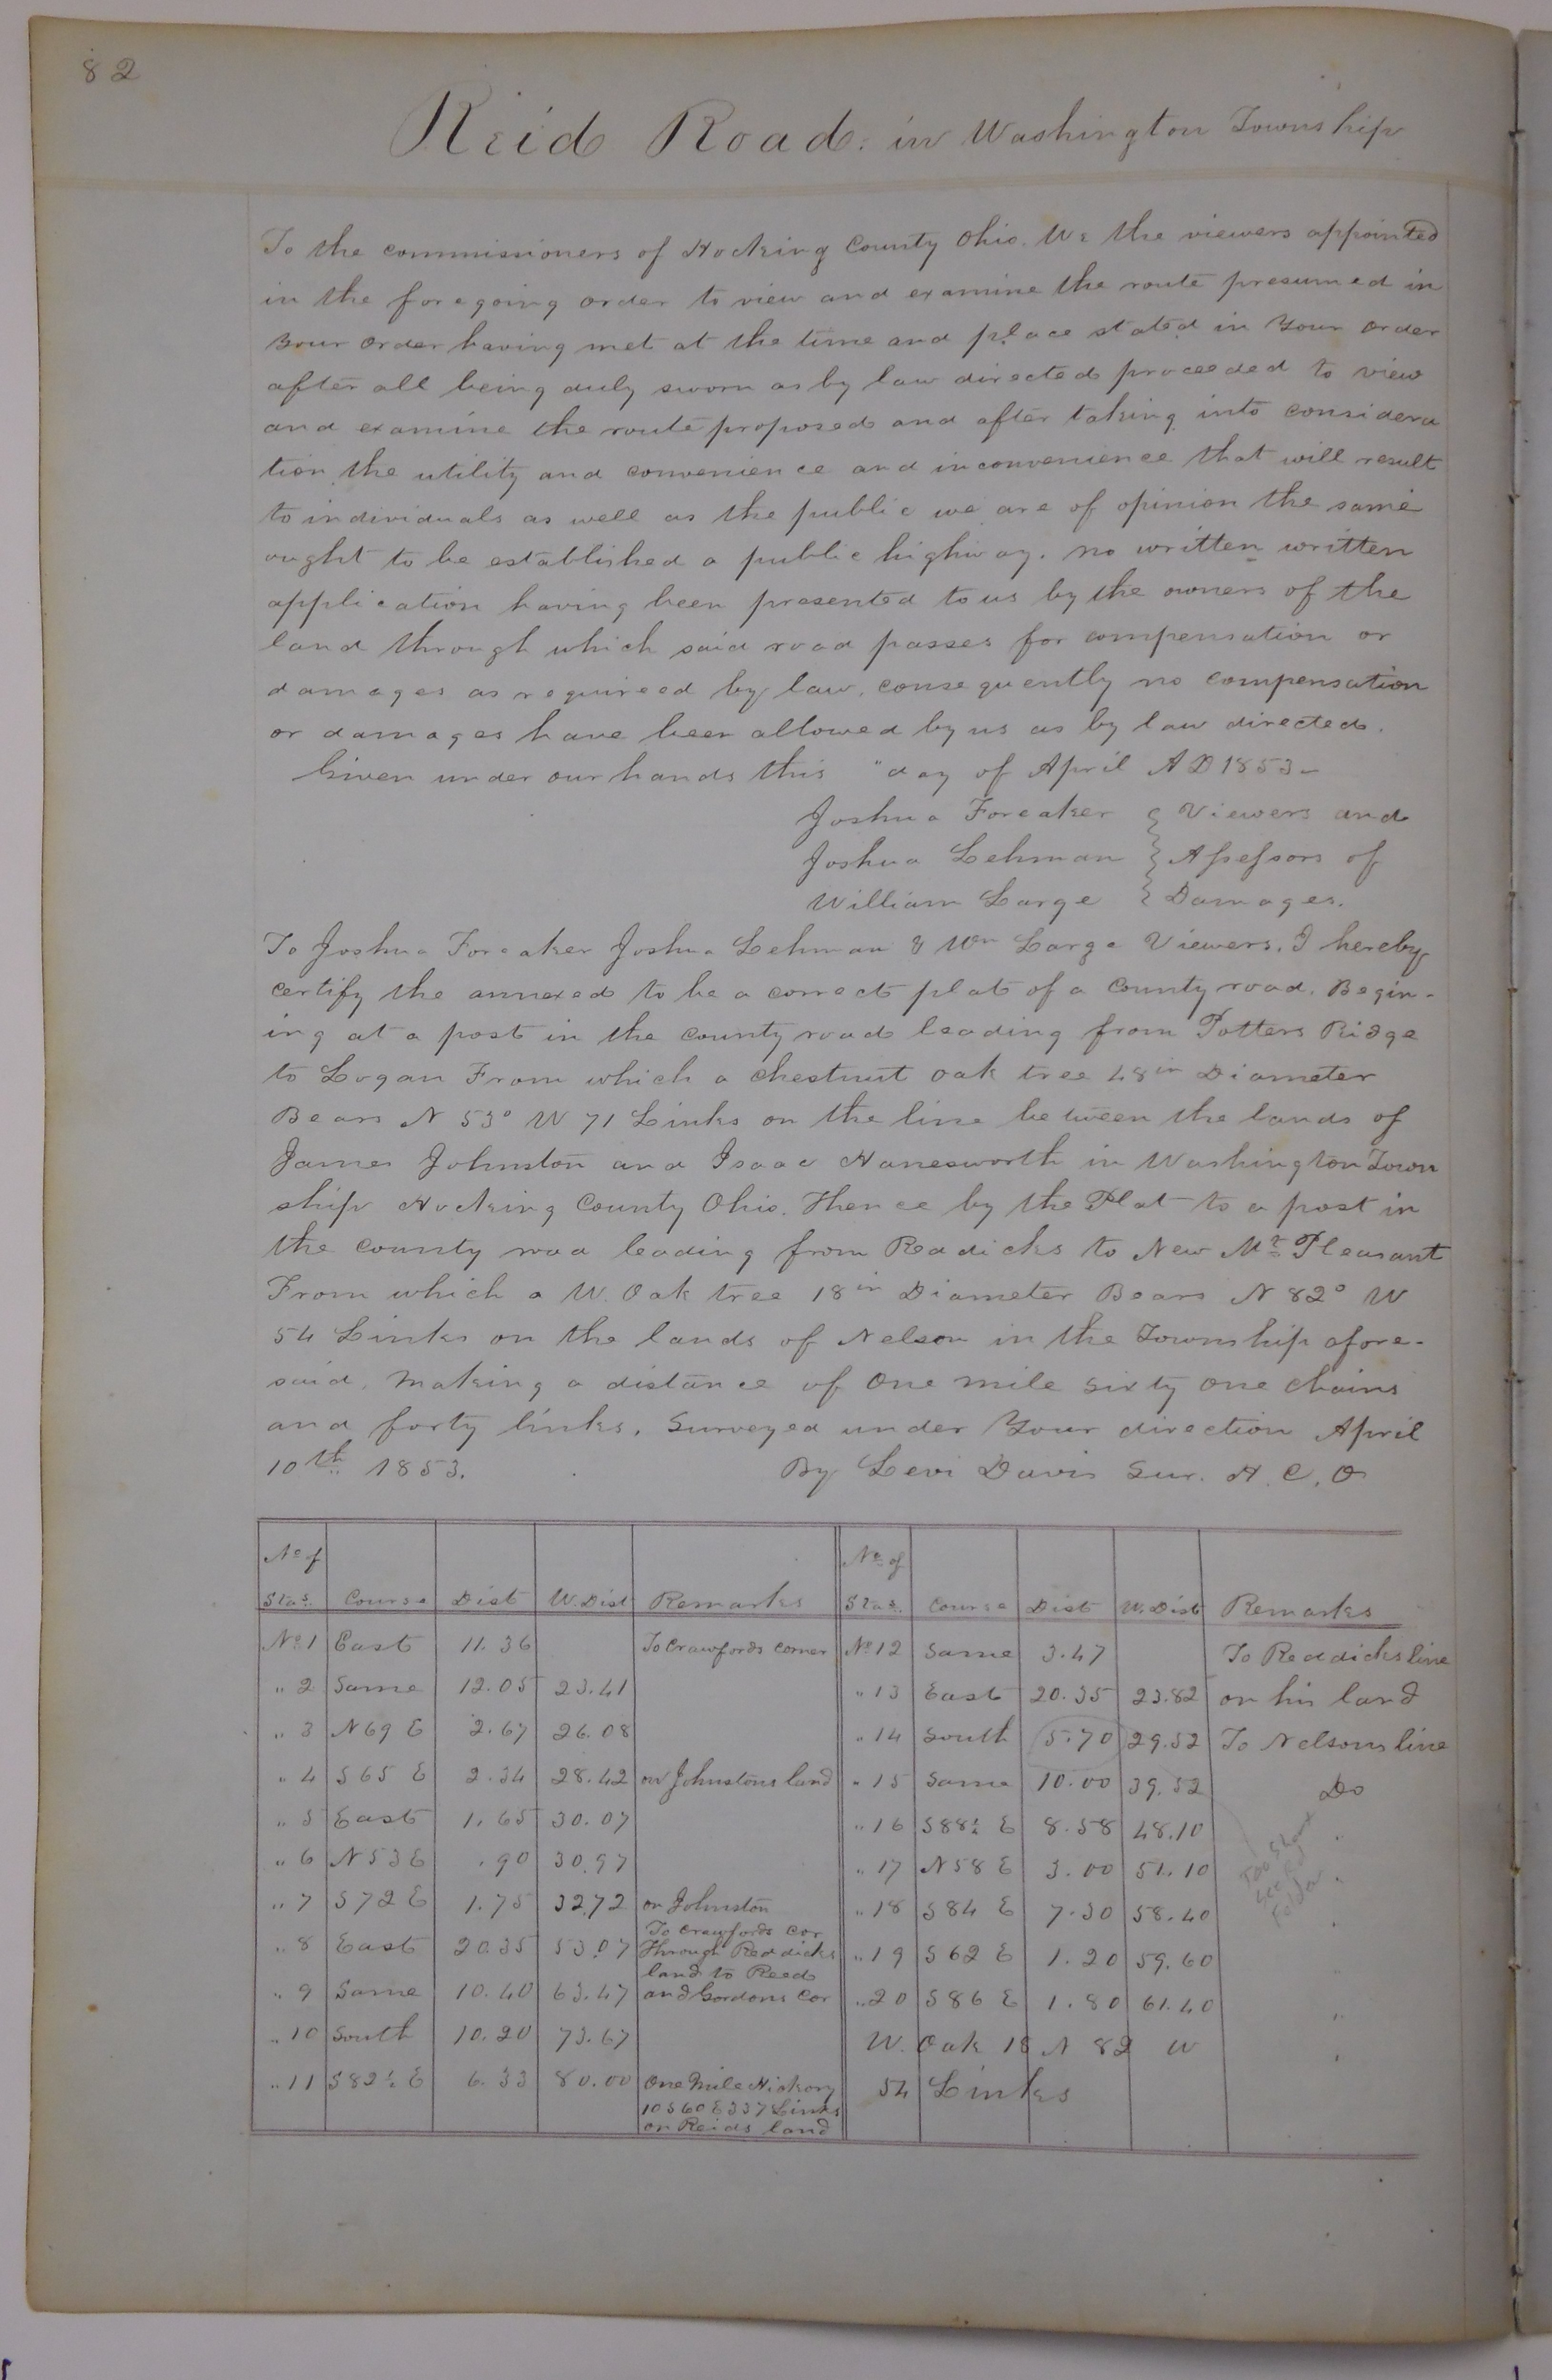 82
Reid Road. in Washington Township
To the commissioners of Hocking County Ohio. We the viewers appointed
in the foregoing order to view and examine the route presumed in
Your order having met at the time and place stated in Your order
after all being duly sworn as by law directed proceeded to view
and examine the route proposed and after taking into considera
tion the utility and convenience and inconvenience that will result
to individuals as well as the public we are of opinion the same
ought to be established a public highway. no written written
application having been presented to us by the owners of the
land through which said road passes for compensation or
damages as requireed by law, consequently no compensation
or damages have been allowed by us as by law directed.
Given under our hands this " day of April A D 1853-
Joshua Foreaker } Viewers and
Joshua Lehman } Assessors of
William Large } Damages.
To Joshua Foreaker Joshua Lehman & Wm Large Viewers. I hereby
certify the annexed to be a correct plat of a County road. Begin-
ing at a post in the county road leading from Potters Ridge
to Logan From which a chestnut oak tree 48in Diameter
Bears N 53° W 71 Links on the line between the lands of
James Johnston and Isaac Hanesworth in Washington Town
ship Hocking County Ohio. Thence by the Plat to a post in
the county road leading from Readicks to New Mt Pleasant
From which a W. Oak tree 18in Diameter Bears N 82° W
54 Links on the lands of Nelson in the Township afore-
said. Making a distance of One mile sixty one chains
and forty links. Surveyed under Your direction April
10th 1853. By Levi Davis Sur. H. C. O
No of Stas. Course Dist W.Dist Remarks No of Stas. Course Dist W.Dist Remarks
No 1 East 11.36 To Crawfords corner No 12 Same 3.47 To Reddicks line
" 2 Same 12.05 23.41 " 13 East 20.35 23.82 on his land
" 3 N 69 E 2.67 26.08 " 14 South 5.70 29.52 To Nelsons line
" 4 S 65 E 2.34 28.42 on Johnstons land " 15 Same 10.00 39.52 Do
" 5 East 1.65 30.07 " 16 S 88½ E 8.58 48.10 "
" 6 N 53 E .90 30.97 " 17 N 58 E 3.00 51.10 "
" 7 S 72 E 1.75 32.72 on Johnston " 18 S 84 E 7.30 58.40 "
" 8 East 20.35 53.07 To Crawfords Cor Through Reddicks land to Reed " 19 S 62 E 1.20 59.60 "
" 9 Same 10.40 63.47 and Gordons Cor " 20 S 86 E 1.80 61.40 "
" 10 South 10.20 73.67 W. Oak 18 N 82 W
" 11 S 82½ E 6.33 80.00 One Mile Hickory 54 Links
10 S 60 E 337 Links
on Reids land
Too Short
See
Folder